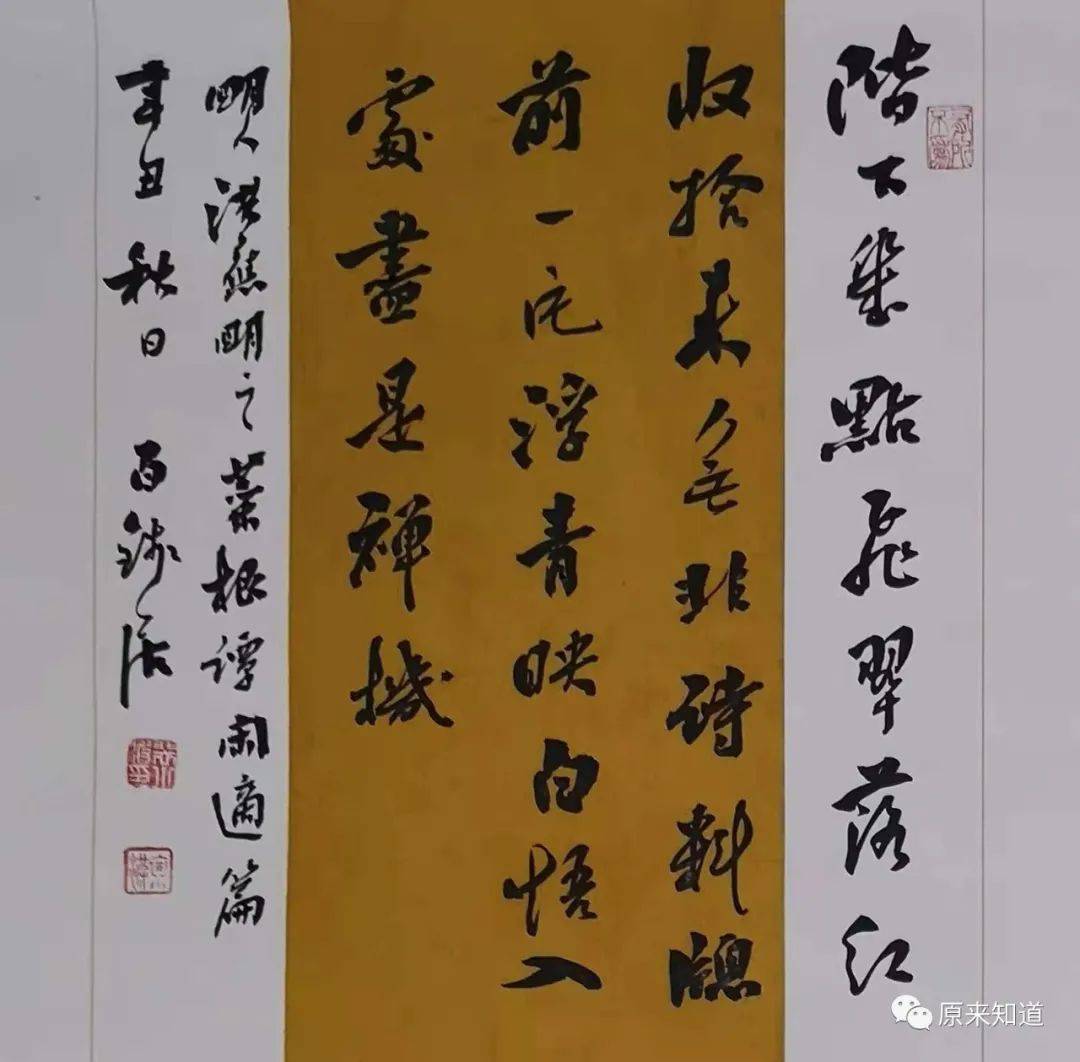 階下幾點飛翠落紅
收拾來無非詩料牕
前一片浮青映白悟入
處盡是禪機
明人洪應明之菜根譚閑適篇
辛丑秋日
有所不為
原来知道